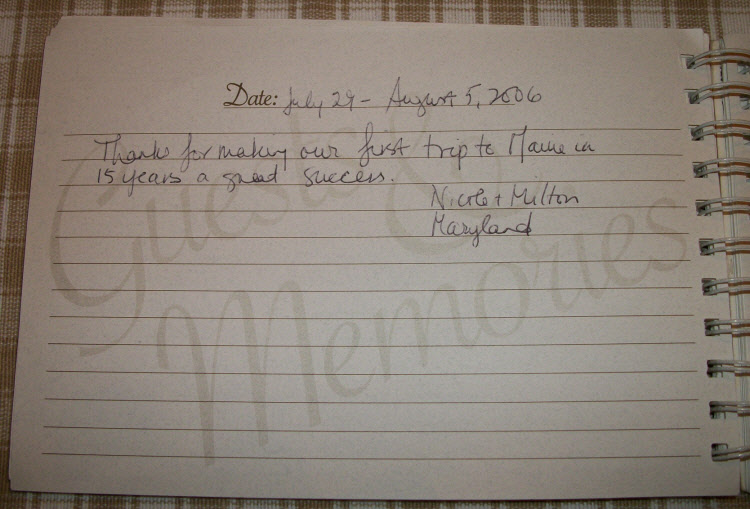 Date: July 29 - August 5, 2006
Thanks for making our first trip to Maine in
15 years a great success.
Nicole + Milton
Maryland
Guests &
Memories